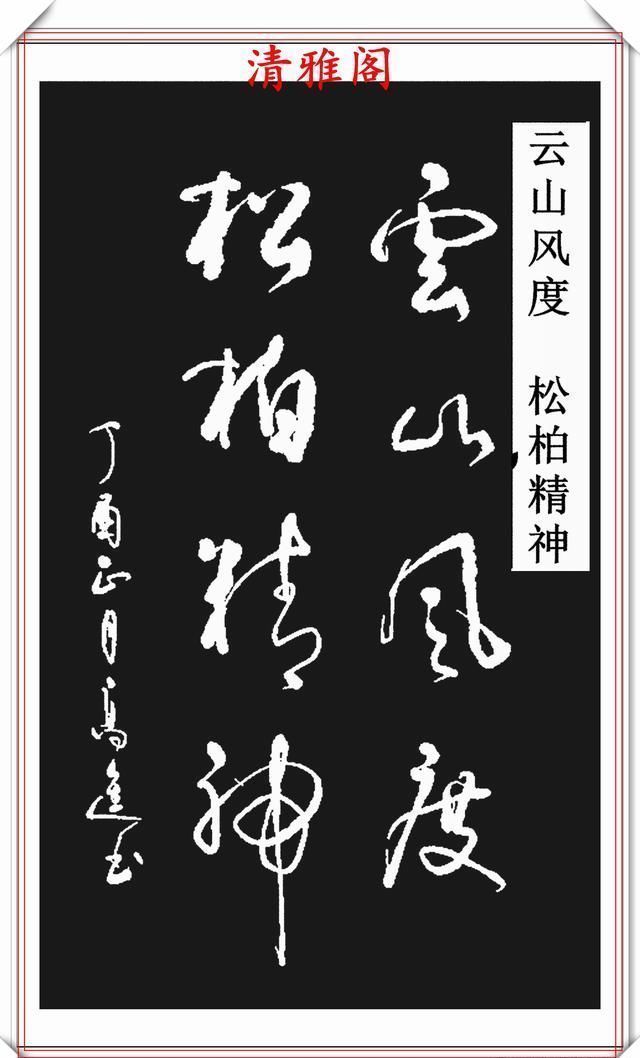 清雅阁
云山风度 松柏精神
雲山风度
松柏精神
丁酉正月高進玉